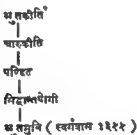 श्रुतकीर्ति
चारुकीर्ति
पण्डित
सिद्धान्तयोगी
श्रुतमुनि (स्वर्गवास १३५५)